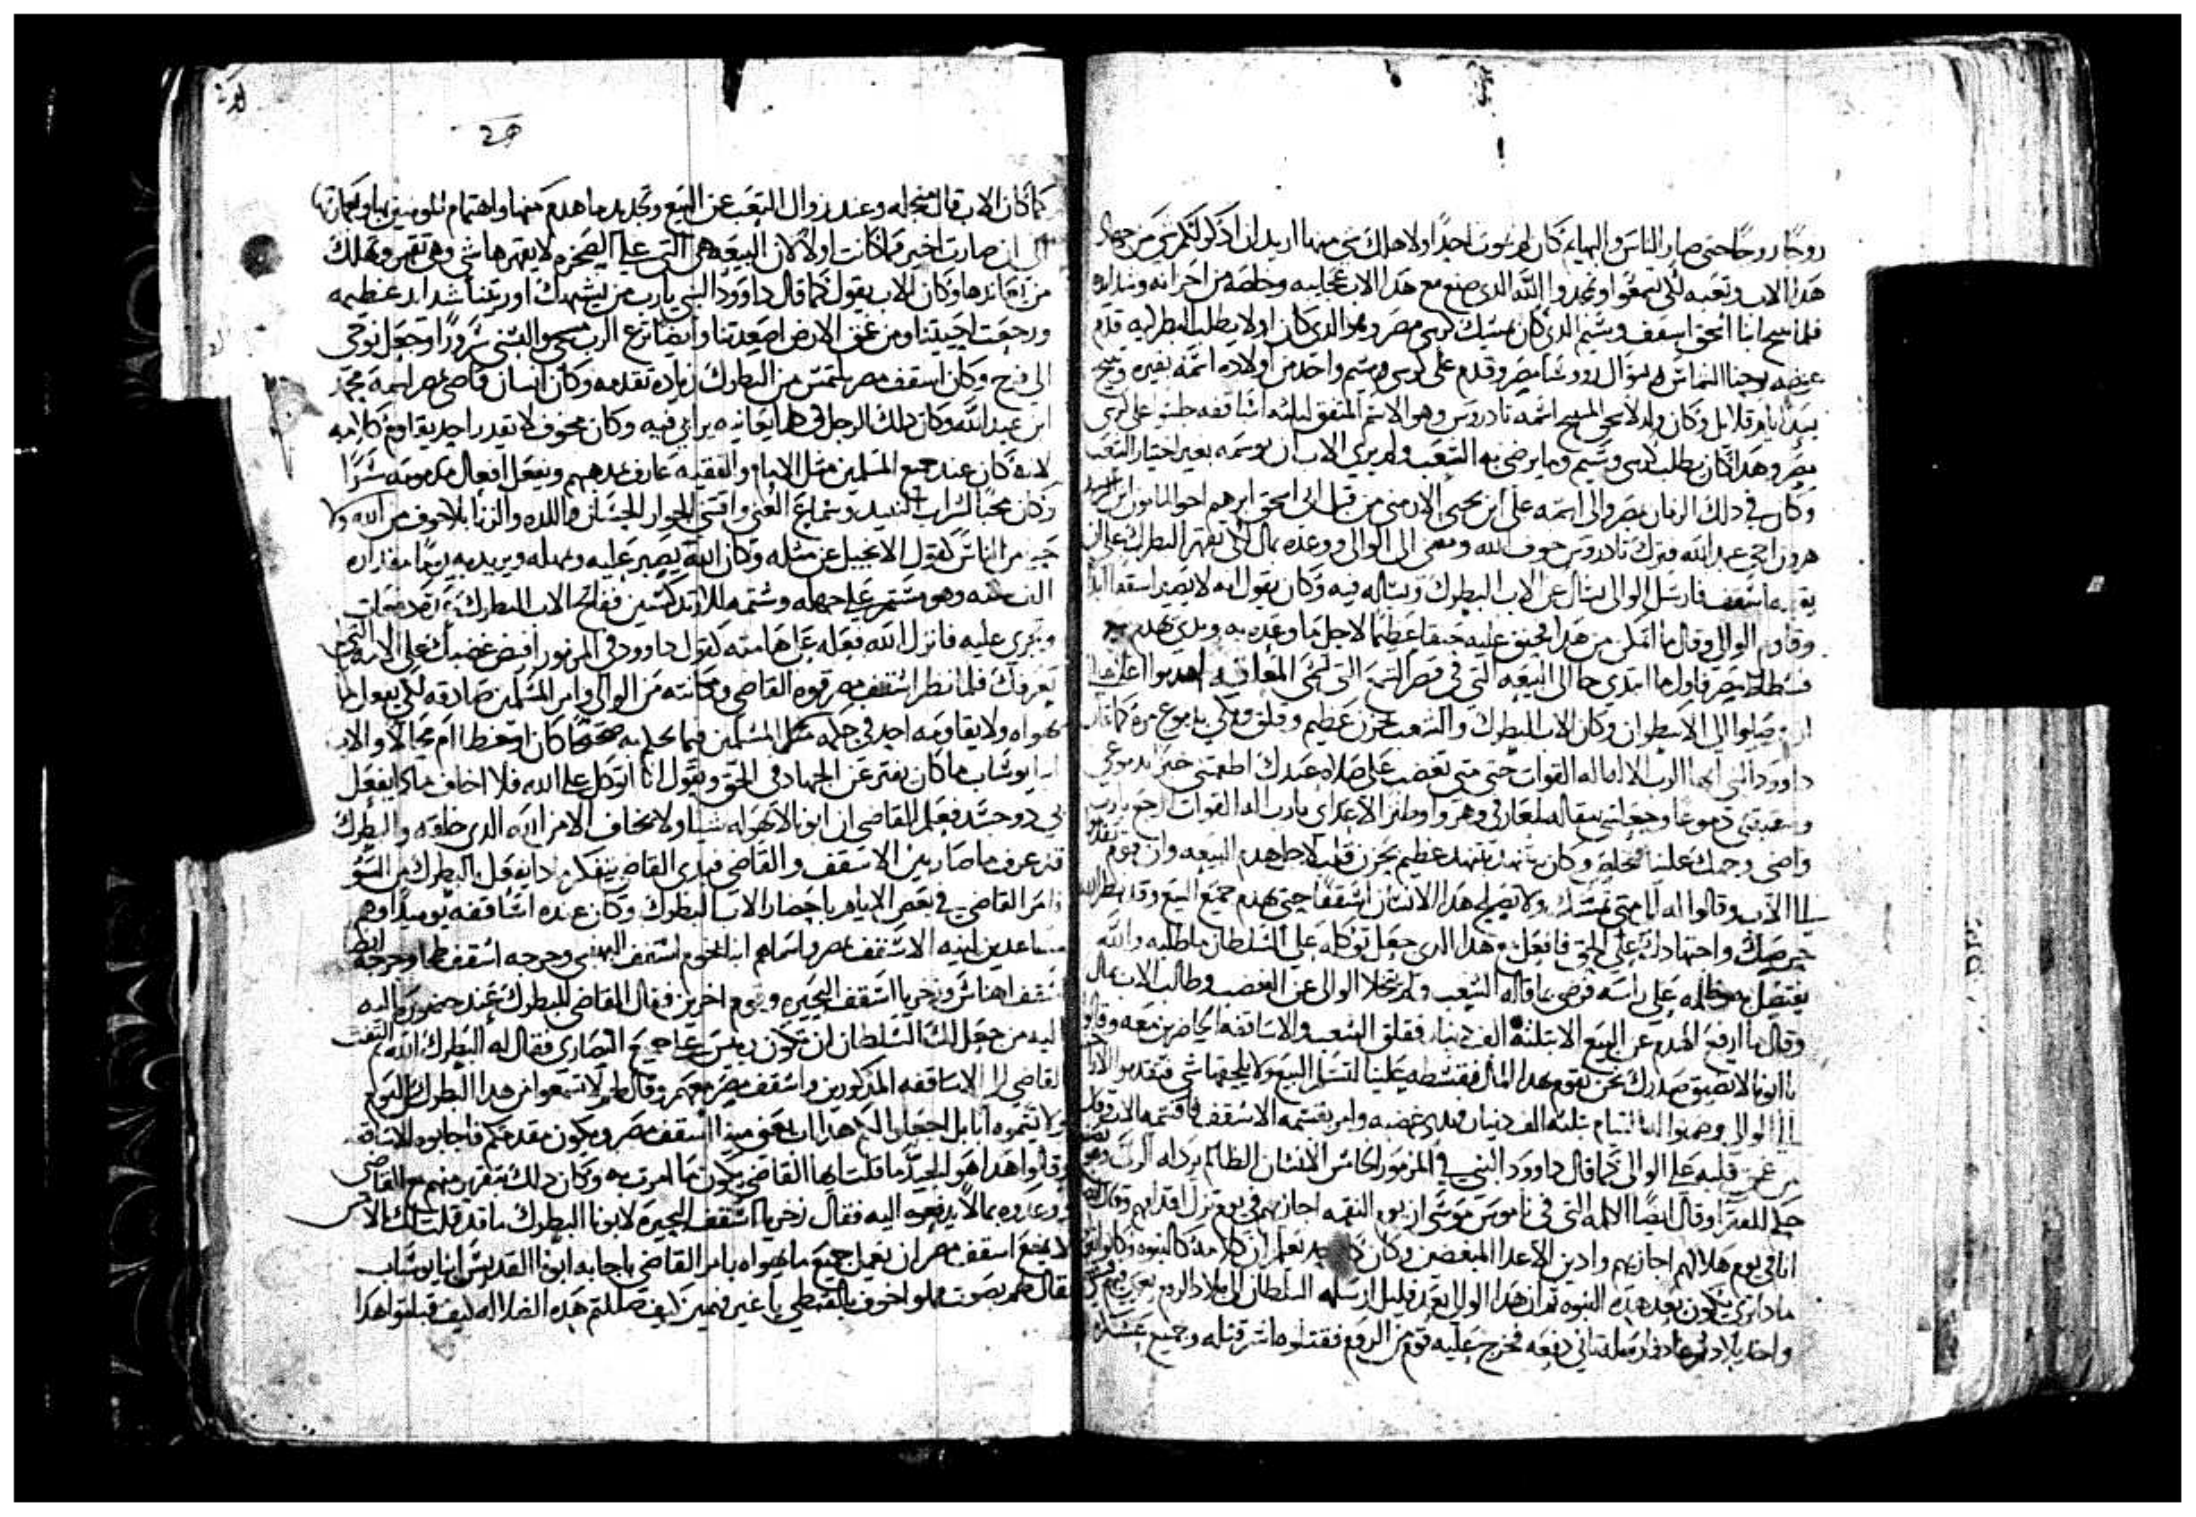 روحًا روحًا حتى صار الناس والبهايم كان لم يموت احدًا ولا هلك شي منها اريد ان اذكر لكم شي من جهاد
هذا الاب وتعبه لكي تسمعوا وتمجدوا الله الذي صنع مع هذا الاب عجايبه وخلصه من احزانه وشدايده
فلما تنيح انبا اسحق اسقف وسيم الذي كان يمسك كرسي مصر وهو الذي كان اولا يطلب البطركيه قدم
عوضه يوحنا الشماس وقدم على كرسي وسيم واحد من اولاده اسمه بقيره وتنيح
بعد ايام قلايل وكان ولد لابي المسيح اسمه تادروس وهو الاسم المتفق لثلثه اساقفه جلسوا على كرسي
مصر وهذا كان يطلب كرسي وسيم وما يرضى به الشعب ولم يرى الاب ان يوسمه بغير اختيار الشعب
وكان في ذلك الزمان بمصر والي اسمه علي ابن يحيى الارمني من قبل ابي اسحق ابرهيم اخو المامون ابن
هرون اخي عبد الله فترك تادروس خوف الله ومضى الى الوالي ووعده بمال لكي يقهر البطرك على ان
يقسمه اسقف فارسل الوالي يسال عن الاب البطرك ويساله فيه وكان يقول انه لا يصير اسقفا ابدا
وقاوم الوالي وقال ما اتمكن من هذا فحنق عليه حنقا عظيما لاجل ما وعده به وبدى يهدم بيع
فسطاط مصر فاول ما ابتدى جا الى البيعه التي في قصر الشمع التي تسمى المعلقه فهدموا اعلاها
الى ان وصلوا الى الاسطوان وكان الاب البطرك والشعب بحزن عظيم وقلق وبكي بدموع مره كما قال
داوود النبي ايها الرب الاله اله القوات حتى متى تغضب على صلاه عبدك اطعمتني خبزا بدموعي
وسقيتني دموعًا وجعلتني مقاله لمعارفي وهزوا وطنز الاعداى يارب اله القوات ارجع يارب
واضي وجهك علينا فنخلص وكان يتنهد تنهد عظيم بحزن قلب لاجل هدم البيعه وان قوم تقدموا
الى الاب وقالوا له الى متى تمسك ولا تصير هذا الانسان اسقفًا حتى تهدم جميع البيع وقد نظر الله
حرصك واجتهادك على الحق فافعل مع هذا الذي جعل توكله على السلطان ما طلبه والله
يفتصل به على راسه فرضي بما قاله الشعب ولم يتخلا الوالي عن الغضب وطالب الاب بمال
وقال ما ارفع الهدم عن البيع الا بثلثه الف دينار فقلق الشعب والاساقفه الحاضرين معه وقالوا
يا ابونا لا تضيق صدرك نحن نقوم بهذا المال فقسطه علينا لتسلم البيع ولا يلحقها شي فتقدموا
الى الوالي وضمنوا له القيام بثلثه الف دينار فهدى غضبه وامر بقسمه الاسقف فاقسمه الاب وقال
من عمق قلبه على الوالي كما قال داوود النبي في المزمور الخامس الانسان الظالم يرذله الرب
وقال ايضًا الاله التي في ناموس موسى ان يوم النقمه اجازيهم في يوم تزل اقدامهم
انا في يوم هلاكهم اجازيهم وادين الاعدا المبغضين وكان كل احد يعلم ان كلامه كالنبوه وكانوا
ماذا ترى يكون بعد هذه النبوه ثم ان هذا الوالي بعد قليل ارسله السلطان الى بلاد الروم يغزي
واخذ بلاد ثم عاد فارسله ثاني دفعه فخرج عليه قوم من الروم فقتلوه اشر قتله وجميع عسكره
29
كما كان الاب قال من اجله وعند زوال التعب عن البيع وتجديد ما هدم منها واهتمام المومنين بها وبعمارتها
الى ان صارت اخير مما كانت اولا لان البيعه هي التي على الصخره لا يقهرها شي وهي تقهر وتهلك
من يعاندها وكان الاب يقول كما قال داوود النبي يارب من يشبهك اوريتنا شدايد عظيمه
ورجعت احييتنا ومن عمق الارض اصعدتنا وايضا نزع الرب مسحي والبسني سرورًا وجعل نوحي
الى فرح وكان اسقف مصر يلتمس من البطرك زياده تقدمه وكان انسان قاضي بمصر اسمه محمد
ابن عبد الله وكان ذلك الرجل في هذا يعانده يرايي فيه وكان مخوف لا يقدر احد يقاوم كلامه
لانه كان عند جميع المسلمين مثل الامام والفقيه عارف بمذهبهم ويفعل افعال مذمومه سرًا
وكان محبًا لشراب النبيد وسماع الغنى واقتنى الجوار الحسان واللذه والزنا بلا خوف من الله ولا
حيا من الناس كقول الانجيل عن مثله وكان الله يصبر عليه ويمهله ويريد به ربما مقداره
الف سنه وهو مستمر على جهله وشتمه للارتدكسيين
ويجري عليه فانزل الله فعله على هامته كقول داوود في المزمور افيض غضبك على الامه التي لم
تعرفك فلما نظر اسقف مصر قوه القاضي ومكانته من الوالي وامر المسلمين صادقه لكي يفعل له ما
يهواه ولا يقاومه احد في حكمه مثل المسلمين فيما يحكم به صحيحًا كان او خطا ام محالا والاب
انبا يوساب ما كان يفتر عن الجهاد في الحق ويقول انا اتوكل على الله فلا اخاف ماذا يفعل
بي ذو جسد فعلم القاضي ان ابونا لا يهوله شيا ولا يخاف الا من الله الذي خلقه والبطرك
قد عرف ما صار بين الاسقف والقاضي فبدى القاضي يتفكر ماذا يفعل بالبطرك من السو
وامر القاضي في بعض الايام باحضار الاب البطرك وكان عنده اساقفه يوميدًا وهم
مساعدين ابنيه الاسقف بمصر واسماهم انبا بخوم اسقف البهنسي وجرجه اسقف طما وجرجه ايضا
اسقف اهناس وزخريا اسقف البحيره وقوم اخرين فقال القاضي للبطرك عند حضوره اليه
اليه من جعل لك السلطان ان تكون ريس على جميع النصارى فقال له البطرك الله ثم التفت
القاضي الى الاساقفه المذكورين واسقف مصر معهم وقال لهم لا تسمعوا من هذا البطرك من اليوم
ولا تسموه ابا بل اجعل لكم هذا ابا يعني مينا اسقف مصر ويكون مقدمكم فاجابوه الاساقفه
وقالوا هذا هو الجيد ما قلت ايها القاضي يكون ما امرت به وكان ذلك بتقرير منهم مع القاضي
ووعدوه بمالا يدفعوه اليه فقال زخريا اسقف البحيره لابونا البطرك ما قد قلت لك الامس
لا تمنع اسقف مصر ان يعمل جميع ما يهواه بامر القاضي فاجابه ابونا القديس انبا يوساب
فقال لهم بصوت مملوا خوف بالقبطي يا غير فهمين كيف ضللتم هذه الضلاله كيف قبلتوا هذا